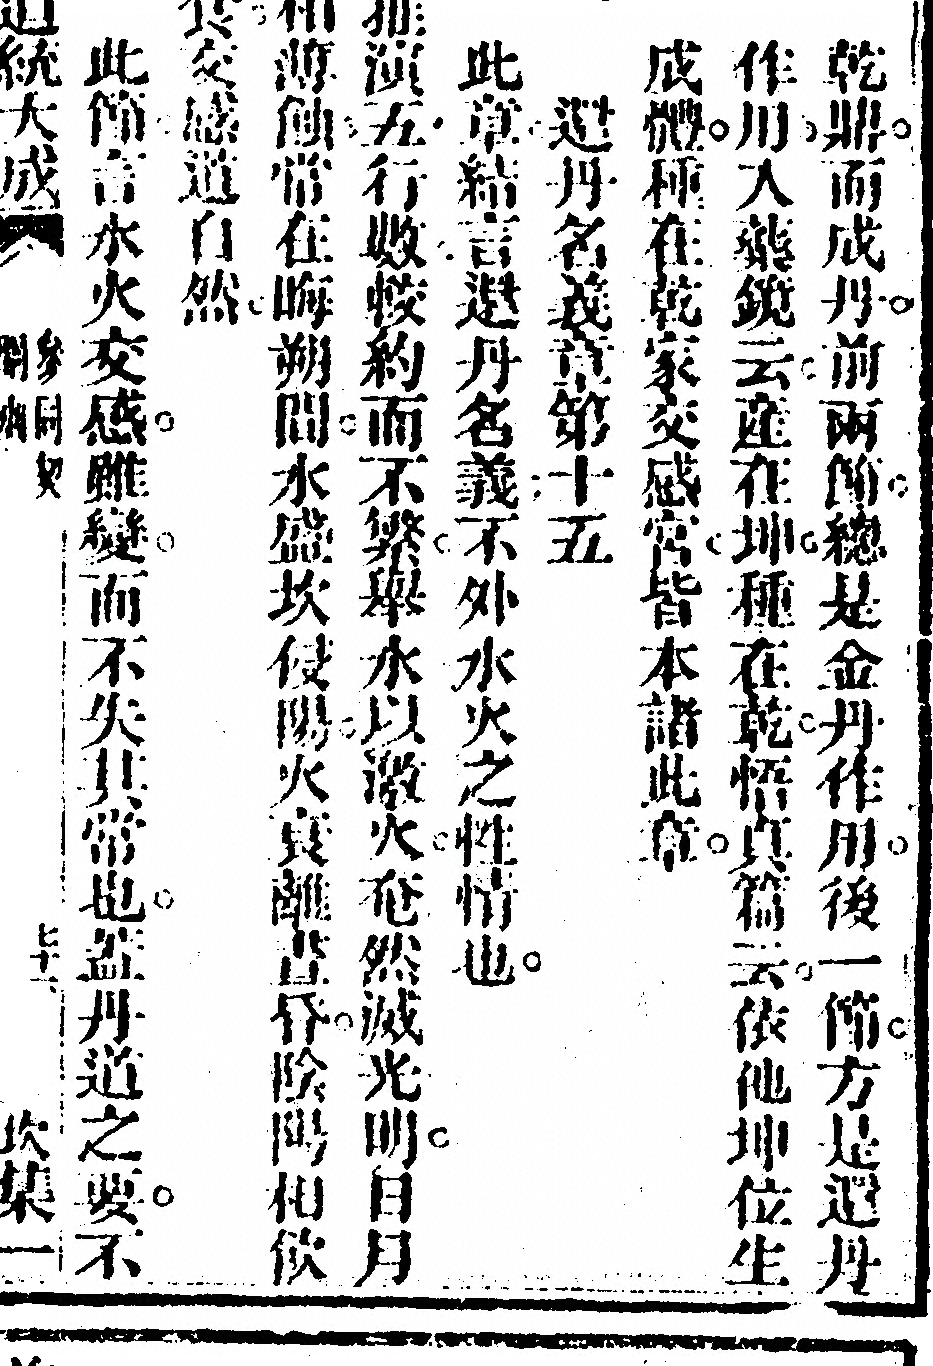 乾鼎而成丹前兩節總是金丹作用後一節方是還丹
作用入藥鏡云產在坤種在乾悟真篇云依他坤位生
成體種在乾家交感宮皆本諸此章
還丹名義章第十五
此章結言還丹名義不外水火之性情也
推演五行數較約而不繁舉水以激火奄然滅光明日月
相薄蝕常在晦朔間水盛坎侵陽火衰離晝昏陰陽相飲
食交感道自然
此節言水火交感雖變而不失其常也蓋丹道之要不
道統大成
參同契
闡幽
七十一
坎集一